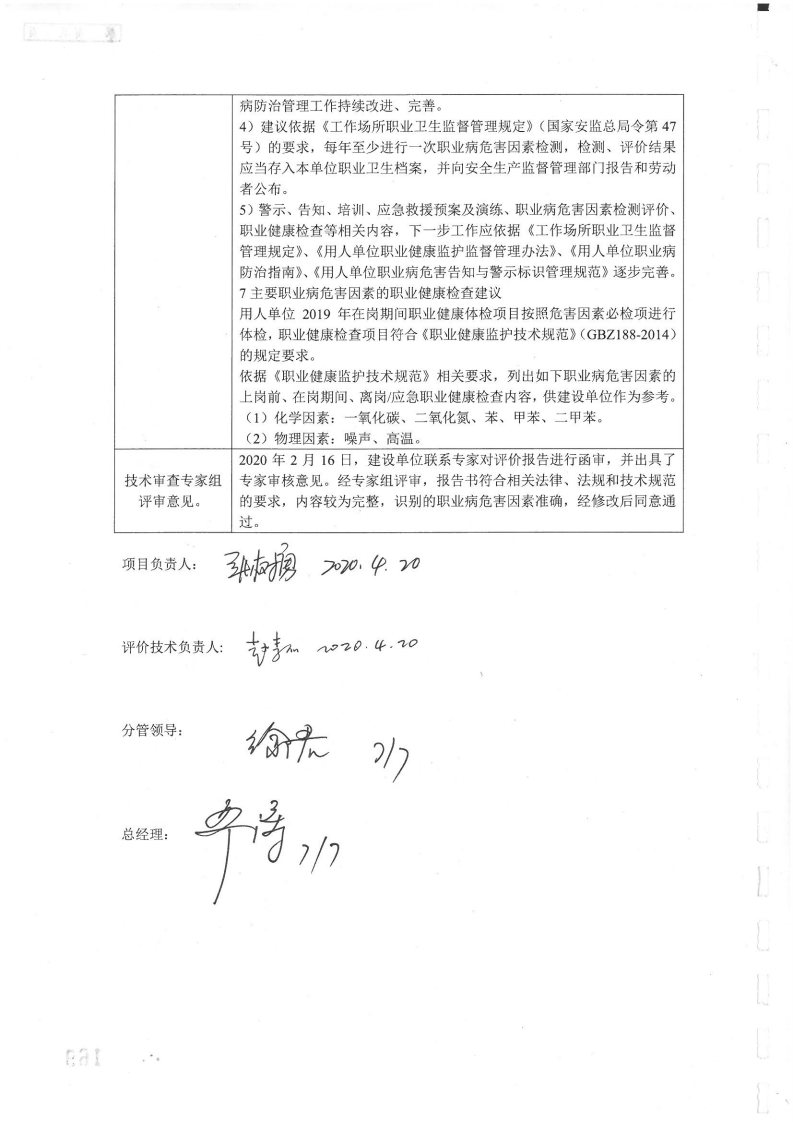 病防治管理工作持续改进、完善。
4）建议依据《工作场所职业卫生监督管理规定》（国家安监总局令第 47
号）的要求，每年至少进行一次职业病危害因素检测，检测、评价结果
应当存入本单位职业卫生档案，并向安全生产监督管理部门报告和劳动
者公布。
5）警示、告知、培训、应急救援预案及演练、职业病危害因素检测评价、
职业健康检查等相关内容，下一步工作应依据《工作场所职业卫生监督
管理规定》、《用人单位职业健康监护监督管理办法》、《用人单位职业病
防治指南》、《用人单位职业病危害告知与警示标识管理规范》逐步完善。
7 主要职业病危害因素的职业健康检查建议
用人单位 2019 年在岗期间职业健康体检项目按照危害因素必检项进行
体检，职业健康检查项目符合《职业健康监护技术规范》（GBZ188-2014）
的规定要求。
依据《职业健康监护技术规范》相关要求，列出如下职业病危害因素的
上岗前、在岗期间、离岗/应急职业健康检查内容，供建设单位作为参考。
（1）化学因素：一氧化碳、二氧化氮、苯、甲苯、二甲苯。
（2）物理因素：噪声、高温。
技术审查专家组
评审意见。
2020 年 2 月 16 日，建设单位联系专家对评价报告进行函审，并出具了
专家审核意见。经专家组评审，报告书符合相关法律、法规和技术规范
的要求，内容较为完整，识别的职业病危害因素准确，经修改后同意通
过。
项目负责人： 2020.4.20
评价技术负责人: 2020.4.20
分管领导： 7/7
总经理： 7/7